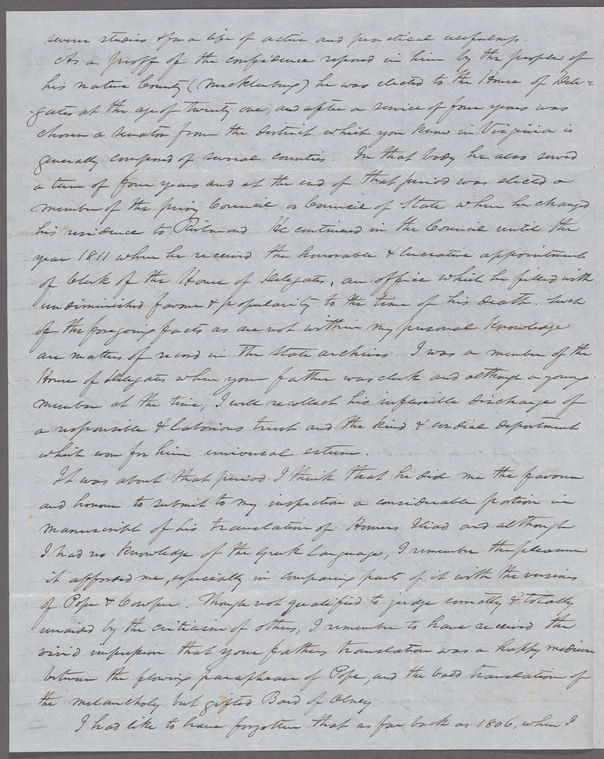 severer studies & for a life of active and practical usefulness.
As a proof of the confidence reposed in him by the people of
his native County (Mecklenburg) he was elected to the House of Dele-
gates at the age of twenty one, and after a service of four years was
chosen a senator from the District which you know in Virginia is
generally composed of several counties. In that body he also served
a term of four years and at the end of that period was elected a
member of the privy Council or Council of State when he changed
his residence to Richmond. He continued in the Council until the
year 1811 when he received the honorable & lucrative appointment
of Clerk of the House of Delegates, an office which he filled with
undiminished favour & popularity to the time of his death. Such
of the foregoing facts as are not within my personal knowledge
are matters of record in the State archives. I was a member of the
House of Delegates when your father was clerk and although a young
member at the time, I well recollect his inflexible discharge of
a responsible & laborious trust and the kind & cordial deportment
which won for him universal esteem.
It was about that period I think that he did me the favour
and honour to submit to my inspection a considerable portion in
manuscript of his translation of Homers Iliad and although
I had no knowledge of the Greek language, I remember the pleasure
it afforded me, especially in comparing parts of it with the versions
of Pope & Cowper. Though not qualified to judge correctly & totally
unaided by the criticism of others, I remember to have received the
vivid impression that your fathers translation was a happy medium
between the flowing paraphrase of Pope, and the bald translation of
the melancholy but gifted Bard of Olney.
I had like to have forgotten that as far back as 1806, when I